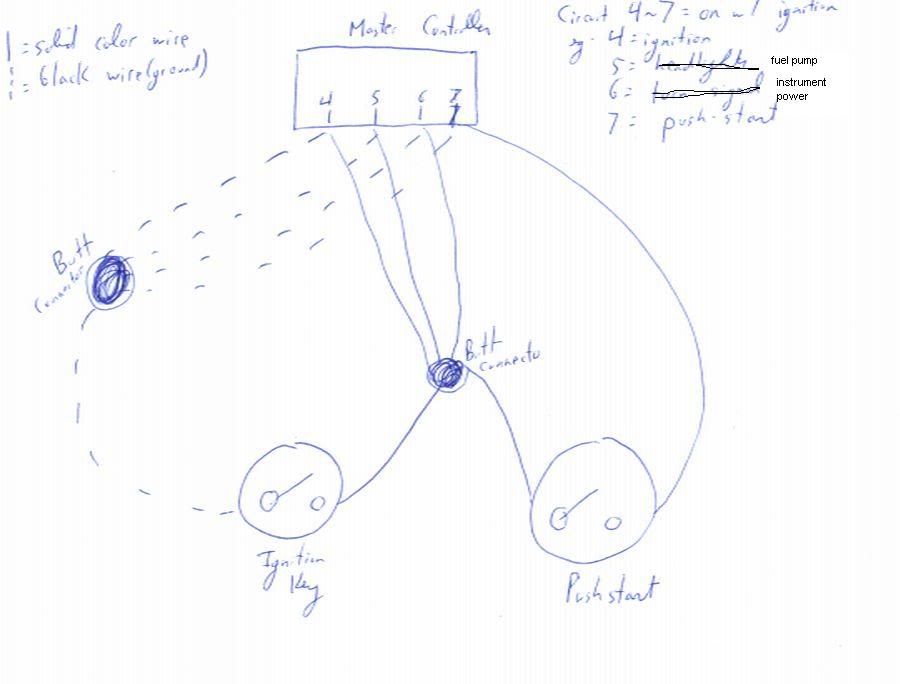 | = solid color wire
¦ = black wire (ground)
Master Controller
4 5 6 7
Circuit 4~7 = on w/ ignition
eg. 4 = ignition
5 = headlights fuel pump
6 = turn signal instrument
power
7 = push-start
Butt
connector
Butt
connector
Ignition
Key
Push start